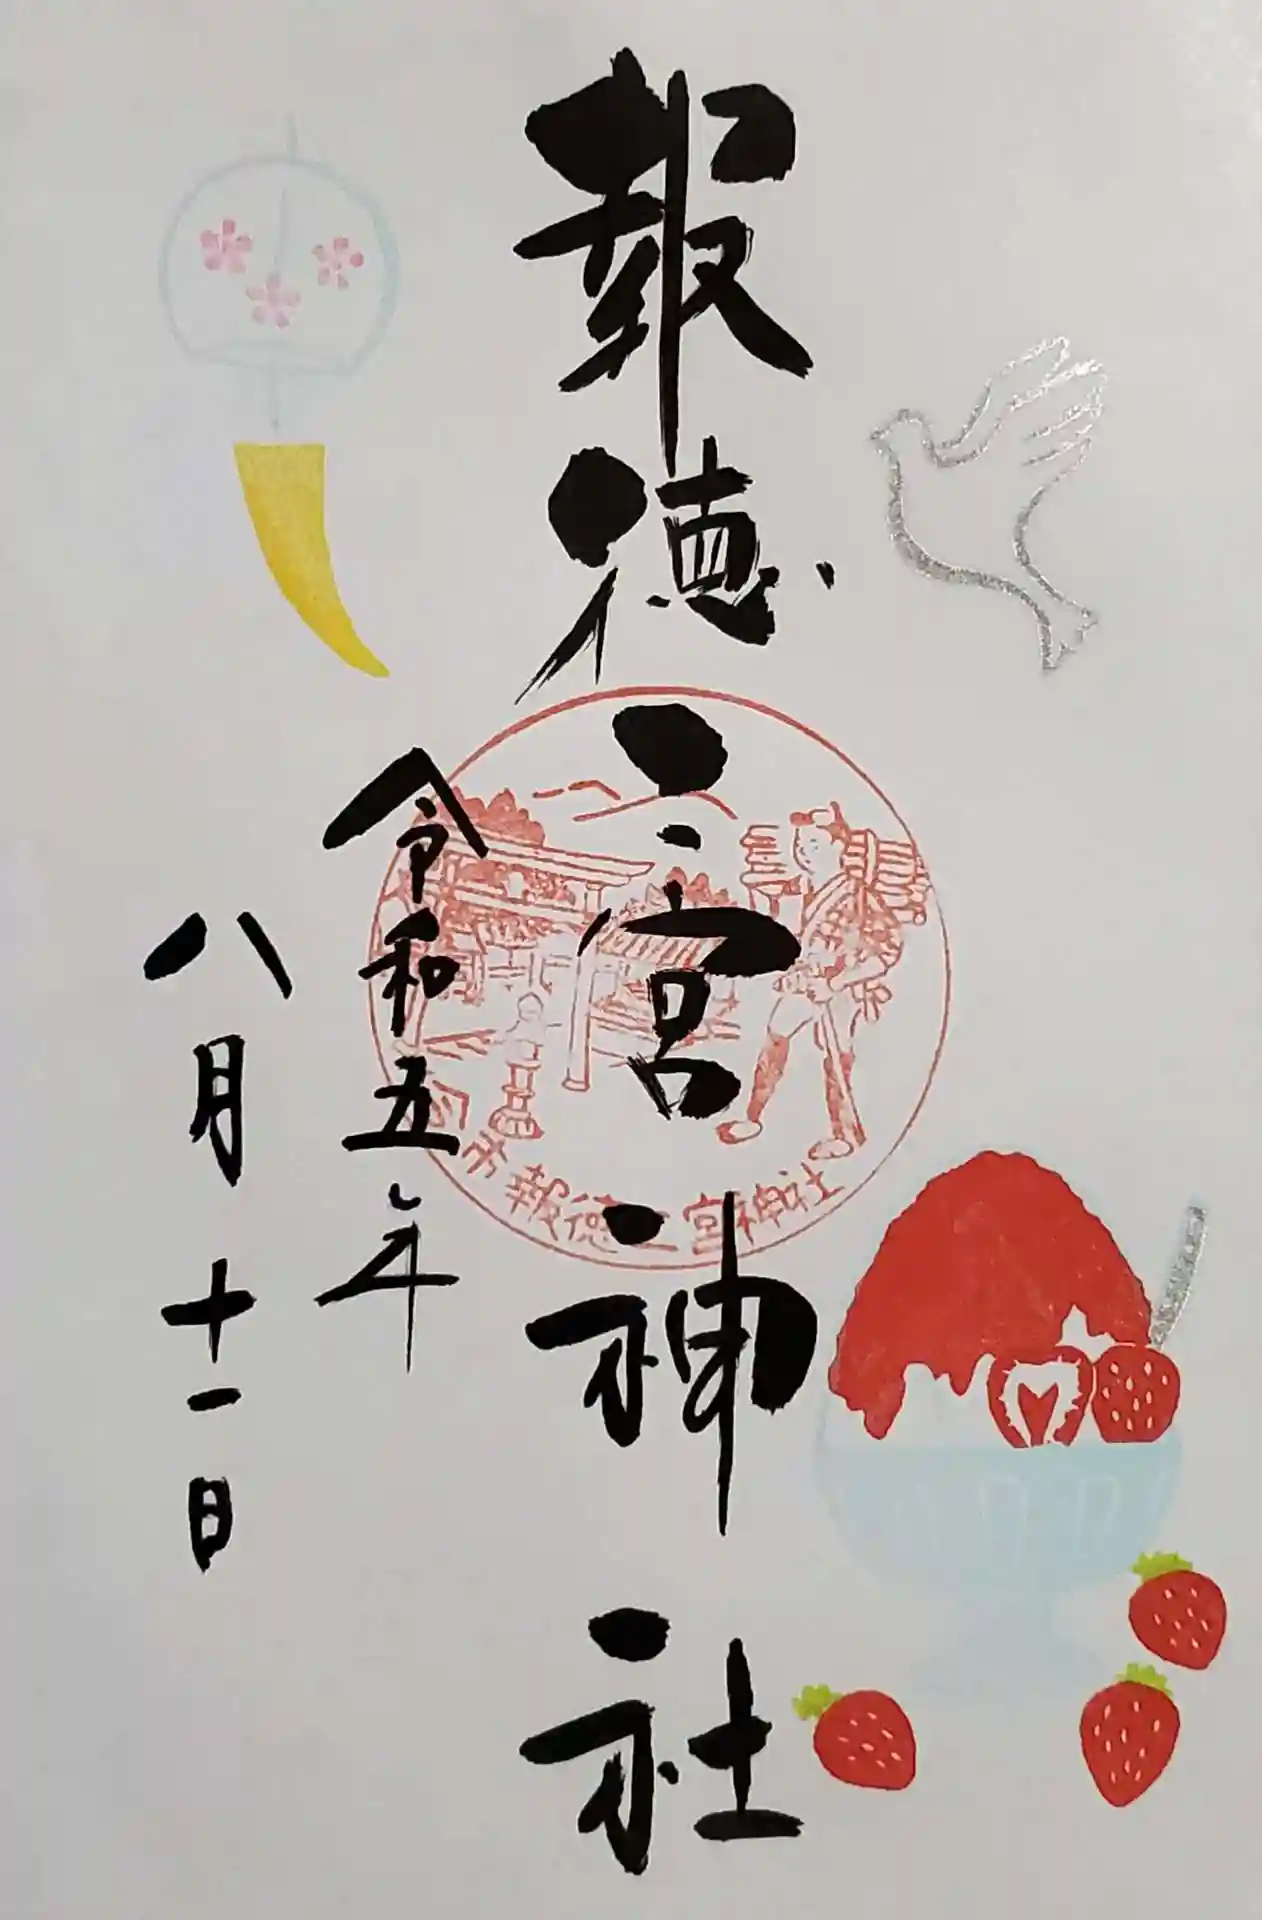 報徳二宮神社
令和五年
八月十一日
市報徳二宮神社